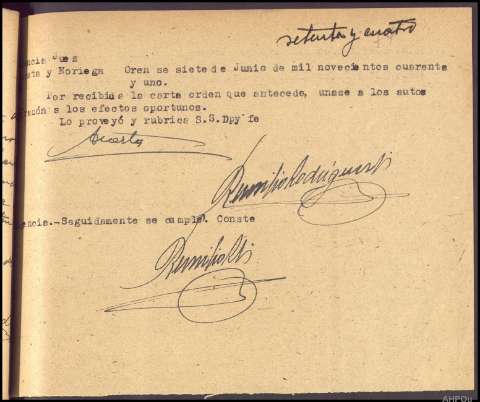 setenta y cuatro
encia Juez
sta y Noriega Oren se siete de Junio de mil novecientos cuarenta
y uno.
Por recibida la carta orden que antecede, unase a los autos
razón a los efectos oportunos.
Lo proveyó y rubrica S.S. Dpy fe
Acosta
Remilio Rodríguez
encia.-Seguidamente se cumple. Conste
AHPOu